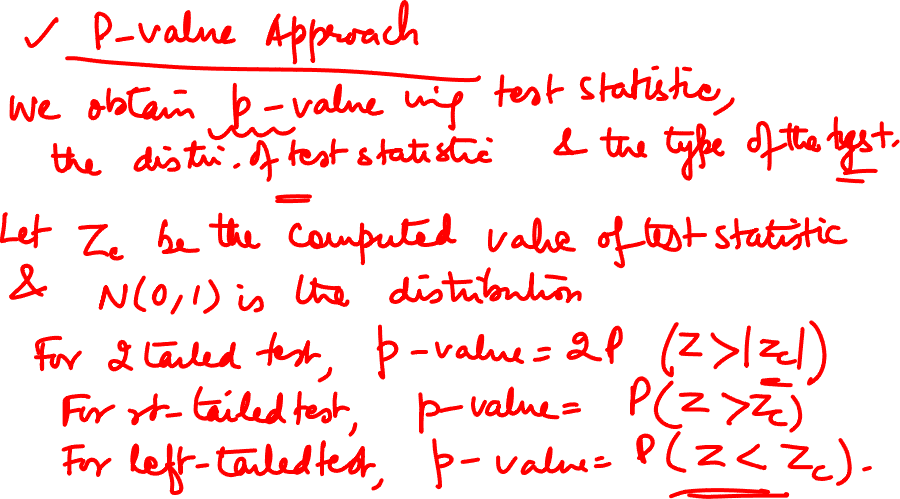 ✓ P-value Approach
We obtain p-value using test statistic,
the distri. of test statistic & the type of the test.
Let Zc be the computed value of test statistic
& N(0,1) is the distribution
For 2 tailed test, p-value = 2P (Z>|Zc|)
For rt-tailed test, p-value = P(Z>Zc)
For left-tailed test, p-value = P(Z<Zc).